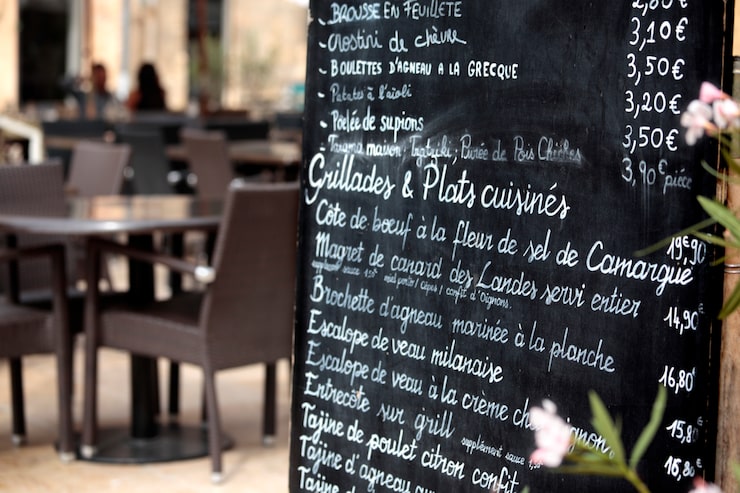 BROUSSE EN FEUILLETÉ 2,80€
Crostini de chèvre 3,10€
BOULETTES D'AGNEAU A LA GRECQUE 3,50€
Patates à l'aïoli 3,20€
Poêlée de supions 3,50€
Tarama maison; Tzatziki; Purée de Pois Chiches 3,90€ pièce
Grillades & Plats cuisinés
Côte de boeuf à la fleur de sel de Camargue 19,90
Magret de canard des Landes servi entier 14,90€
supplément sauce 1,50€ miel porto / cèpes / confit d'oignons.
Brochette d'agneau marinée à la planche 16,80€
Escalope de veau milanaise 15,80
Escalope de veau à la crème champignon 16,80
Entrecôte sur grill supplément sauce
Tajine de poulet citron confit
Tajine d'agneau aux
Tajine